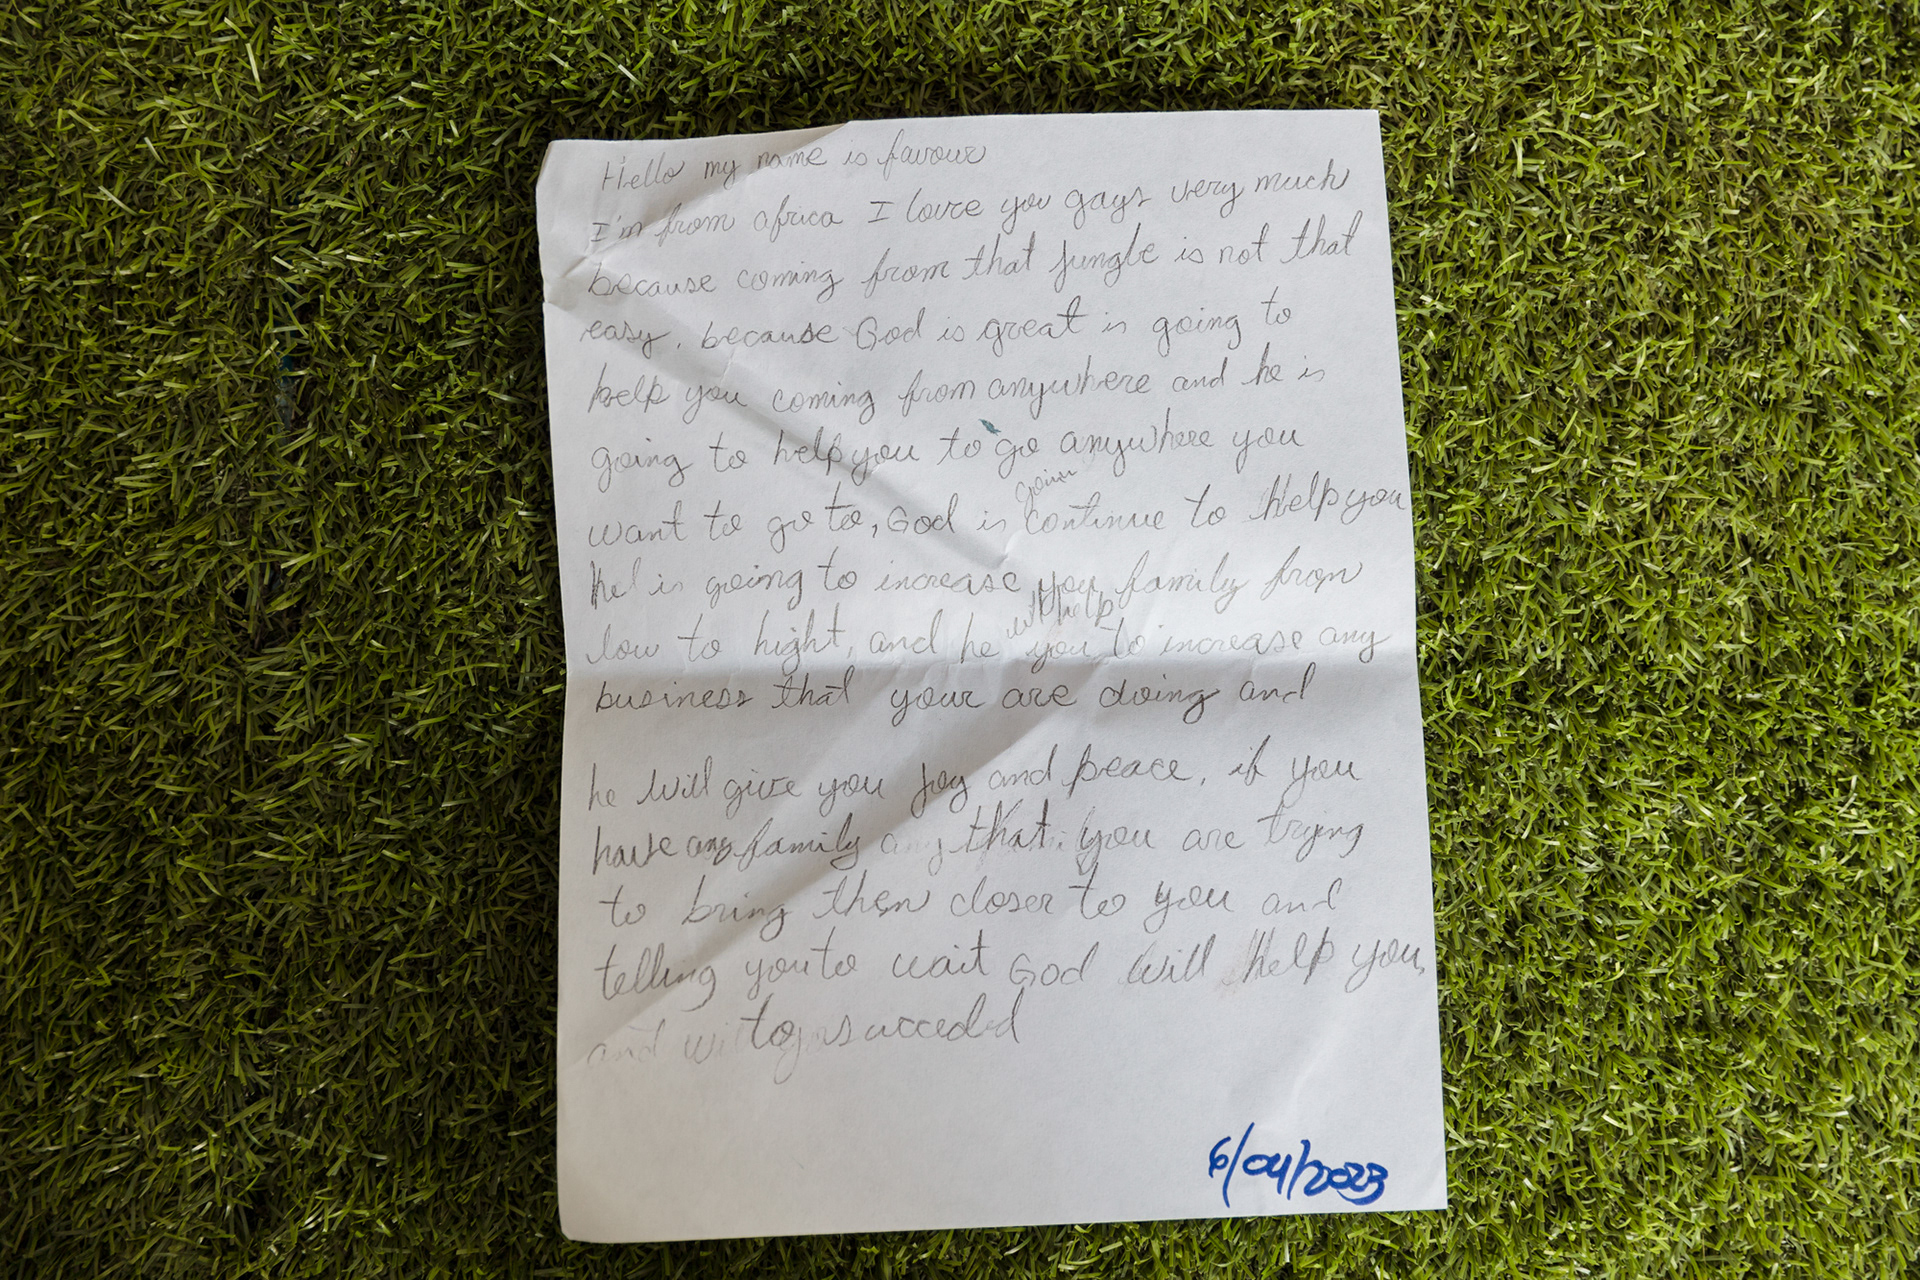 Hello my name is favour
I'm from africa I love you gays very much
because coming from that jungle is not that
easy, because God is great is going to
help you coming from anywhere and he is
going to help you to go anywhere you
want to go to, God is goin continue to help you
he is going to increase you family from
low to hight, and he will help you to increase any
business that your are doing and
he will give you joy and peace, if you
have any family any that you are trying
to bring then closer to you and
telling you to wait God will help you,
and to succeded
6/04/2023